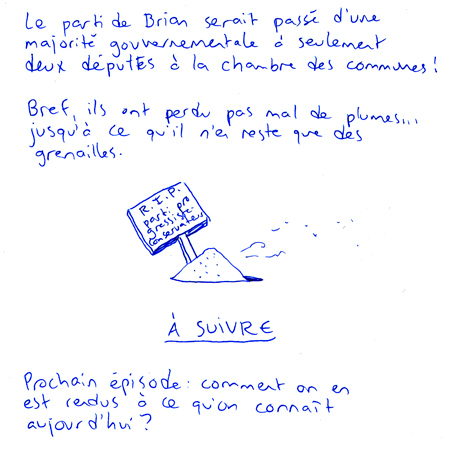 Le parti de Brian serait passé d'une
majorité gouvernementale à seulement
deux députés à la chambre des communes!
Bref, ils ont perdu pas mal de plumes...
jusqu'à ce qu'il n'en reste que des
grenailles.
R.I.P.
parti pro
gressiste-
conservateur
À SUIVRE
Prochain épisode: comment on en
est rendus à ce qu'on connaît
aujourd'hui?